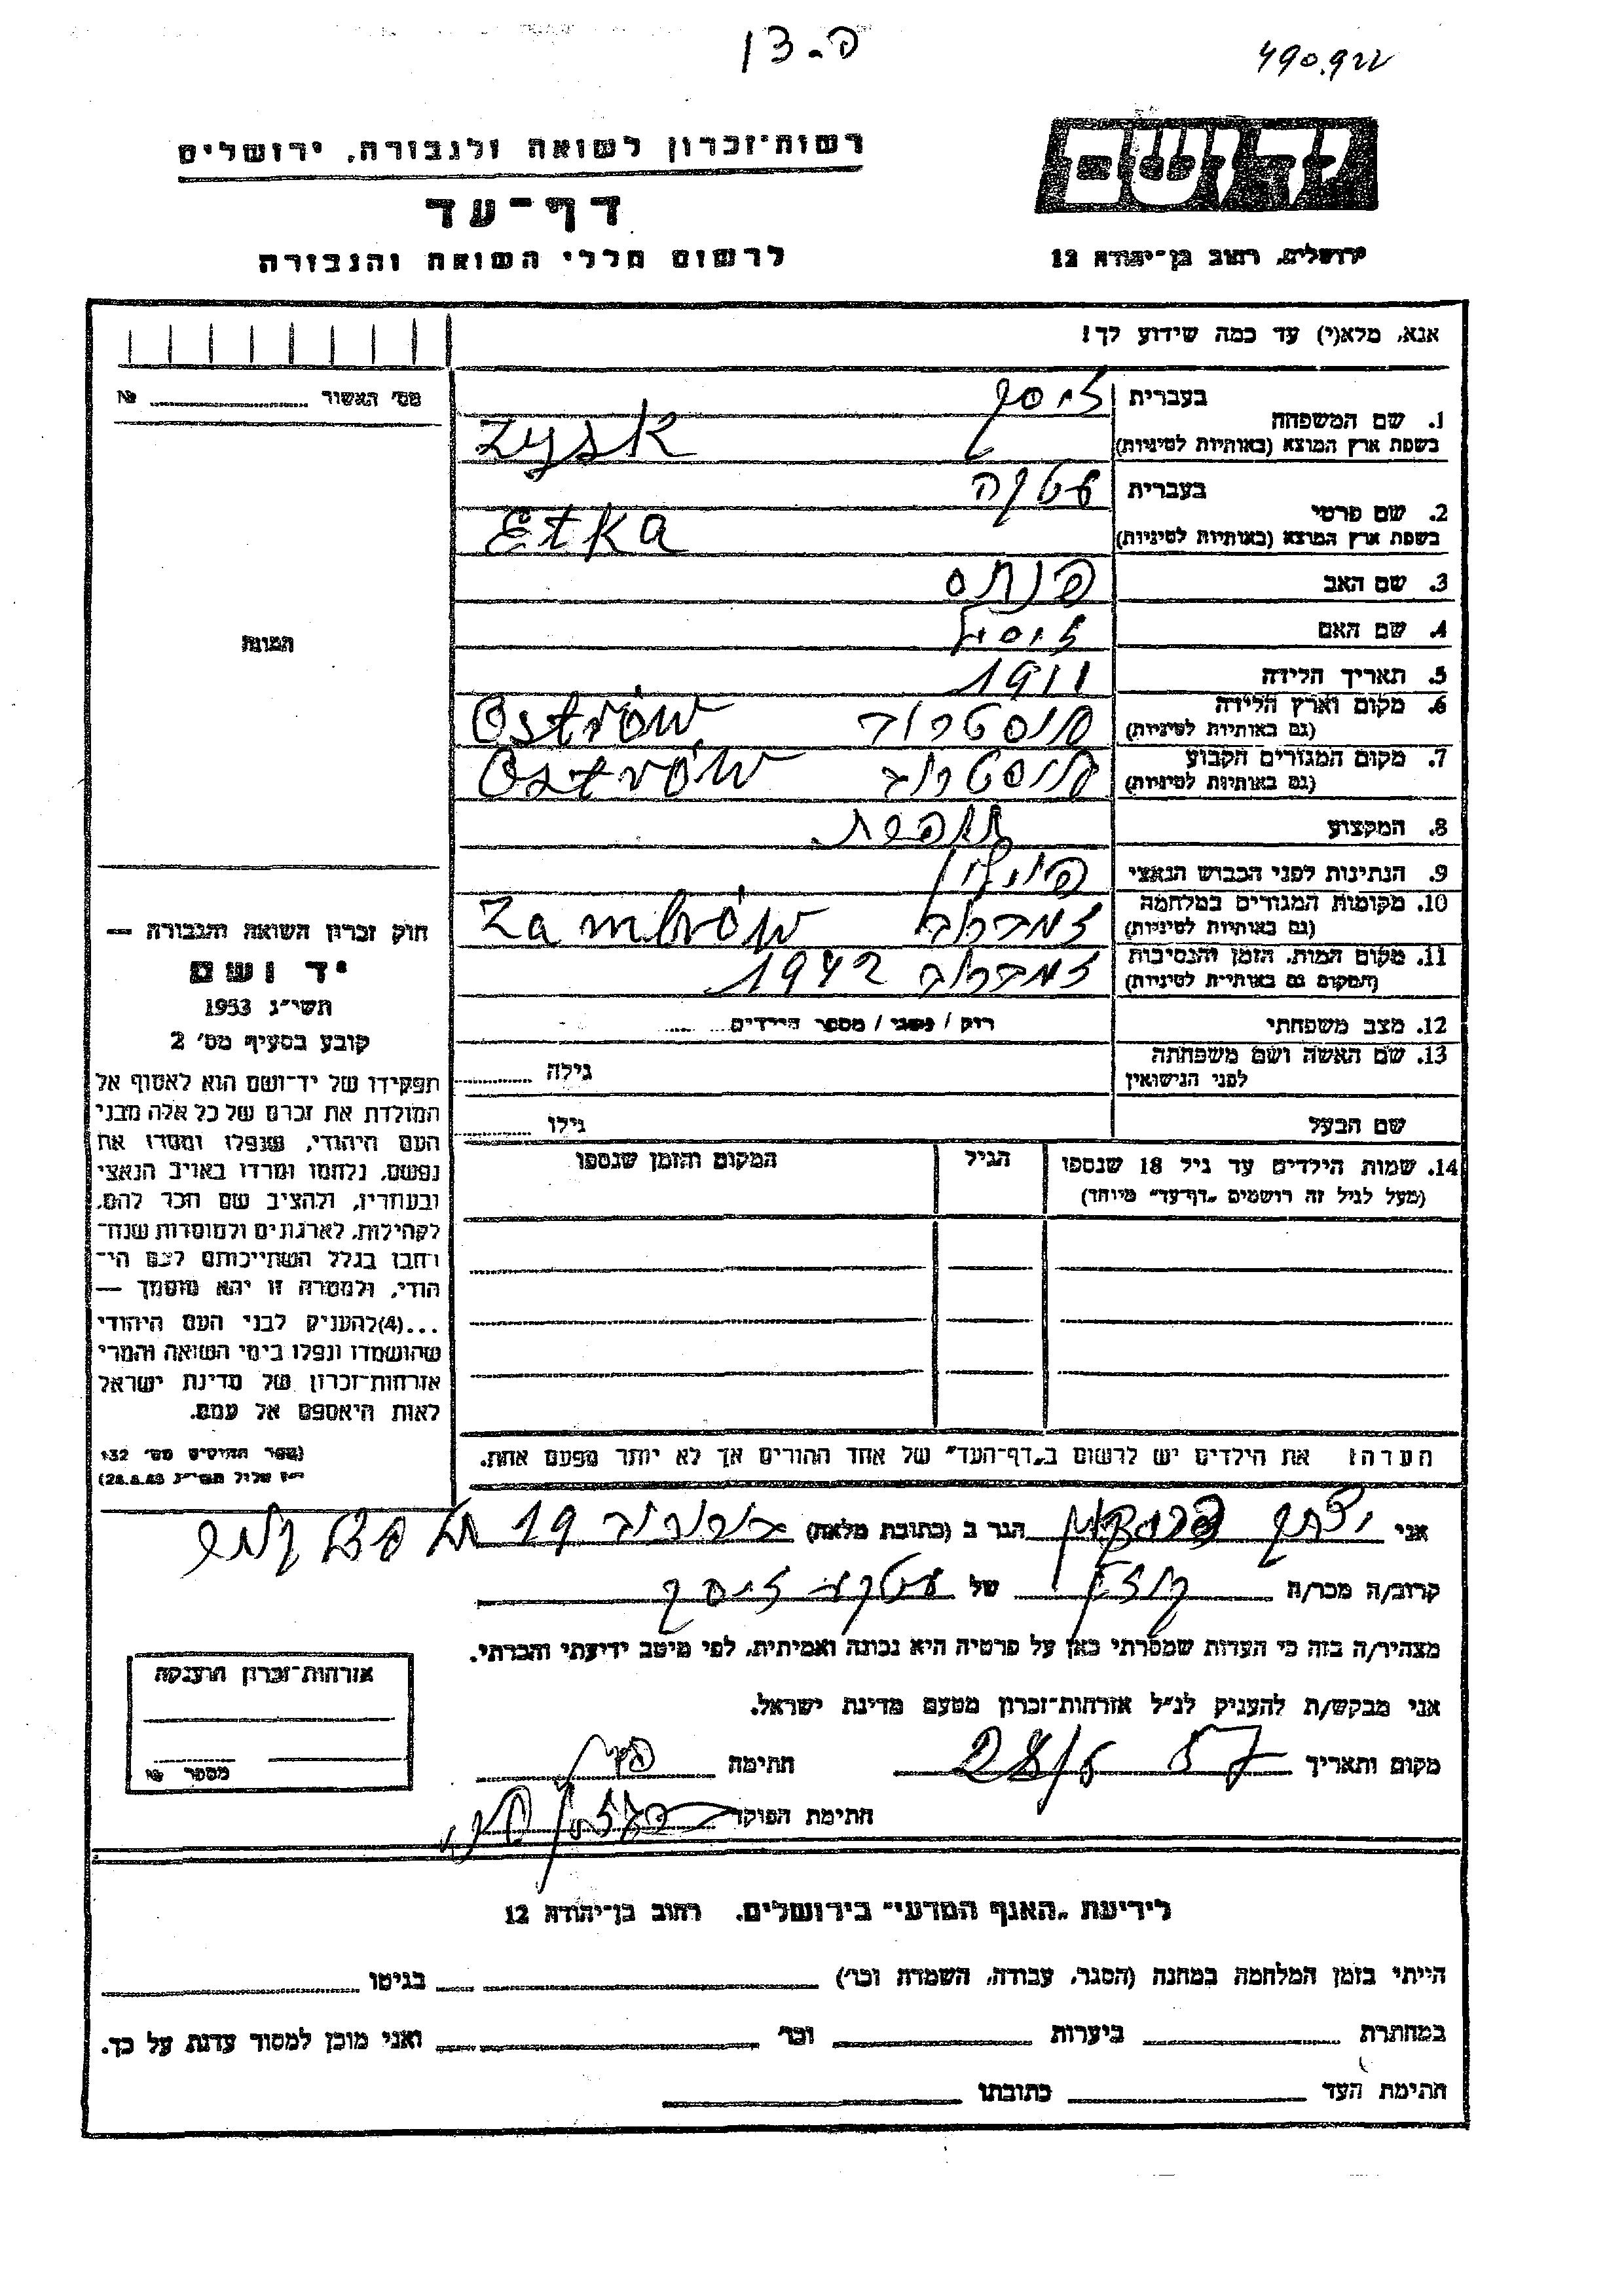 פ. צד 1
490.922
רשות־זכרון לשואה ולגבורה, ירושלים
דף־עד
לרשום חללי השואה והגבורה
ירושלים, רחוב בן־יהודה 12
אנא, מלא(י) עד כמה שידוע לך!
מס' האשור №
1. שם המשפחה
בעברית זיסק
בשפת ארץ המוצא (באותיות לטיניות) Zysk
2. שם פרטי
בעברית עטקה
בשפת ארץ המוצא (באותיות לטיניות) Etka
3. שם האב פנחס
4. שם האם
5. תאריך הלידה 1911
6. מקום וארץ הלידה אוסטרוב Ostrów
(גם באותיות לטיניות)
7. מקום המגורים הקבוע אוסטרוב Ostrów
(גם באותיות לטיניות)
8. המקצוע תופרת
9. הנתינות לפני הכבוש הנאצי פולין
10. מקומות המגורים במלחמה זמברוב Zambrów
(גם באותיות לטיניות)
11. מקום המות, הזמן והנסיבות זמברוב 1942
(המקום גם באותיות לטיניות)
12. מצב משפחתי רוק / נשוי / מספר הילדים
13. שם האשה ושם משפחתה גילה
לפני הנישואין
שם הבעל גילו
14. שמות הילדים עד גיל 18 שנספו הגיל המקום והזמן שנספו
(מעל לגיל זה רושמים „דף־עד" מיוחד)
הערה: את הילדים יש לרשום ב„דף־העד" של אחד ההורים אך לא יותר מפעם אחת.
תמונה
חוק זכרון השואה והגבורה —
יד ושם
תשי"ג 1953
קובע בסעיף מס' 2
תפקידו של יד־ושם הוא לאסוף אל
המולדת את זכרם של כל אלה מבני
העם היהודי, שנפלו ומסרו את
נפשם, נלחמו ומרדו באויב הנאצי
ובעוזריו, ולהציב שם וזכר להם,
לקהילות, לארגונים ולמוסדות שנח־
רחבו בגלל השתייכותם לעם הי־
הודי, ולמטרה זו יהא מוסמך —
...(4)להעניק לבני העם היהודי
שהושמדו ונפלו בימי השואה והמרי
אזרחות־זכרון של מדינת ישראל
לאות היאספם אל עמם.
(ספר החוקים מס' 132
י"ז אלול תשי"ג 28.8.53)
אני יוסף הגר ב (כתובת מלאה) 19
קרוב/ה מכר/ה של עטקה זיסק
מצהיר/ה בזה כי העדות שמסרתי כאן על פרטיה היא נכונה ואמיתית, לפי מיטב ידיעתי והכרתי.
אני מבקש/ת להעניק לנ"ל אזרחות־זכרון מטעם מדינת ישראל.
מקום ותאריך 28/5 57 חתימה
חתימת הפוקד
אזרחות־זכרון הוענקה
מספר №
לידיעת „האגף המדעי" בירושלים, רחוב בן־יהודה 12
הייתי בזמן המלחמה במחנה (הסגר, עבודה, השמדה וכו') בגיטו
במחתרת ביערות וכו' ואני מוכן למסור עדות על כך.
חתימת העד כתובתו